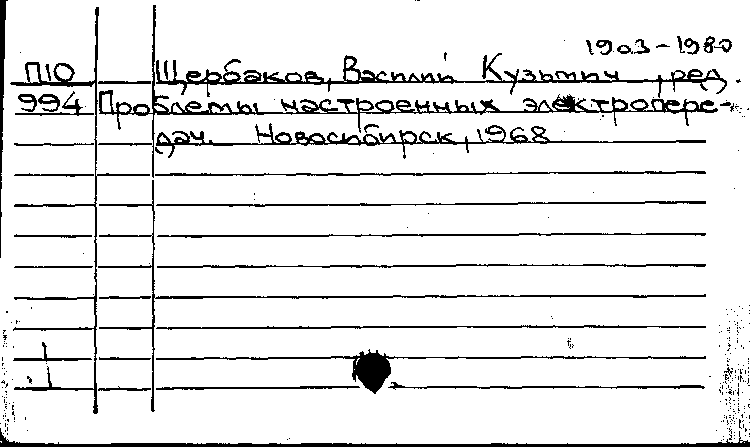 1903-1980
П10 Щербаков, Василий Кузьмич, ред.
994 Проблемы настроенных электропере-
дач. Новосибирск, 1968